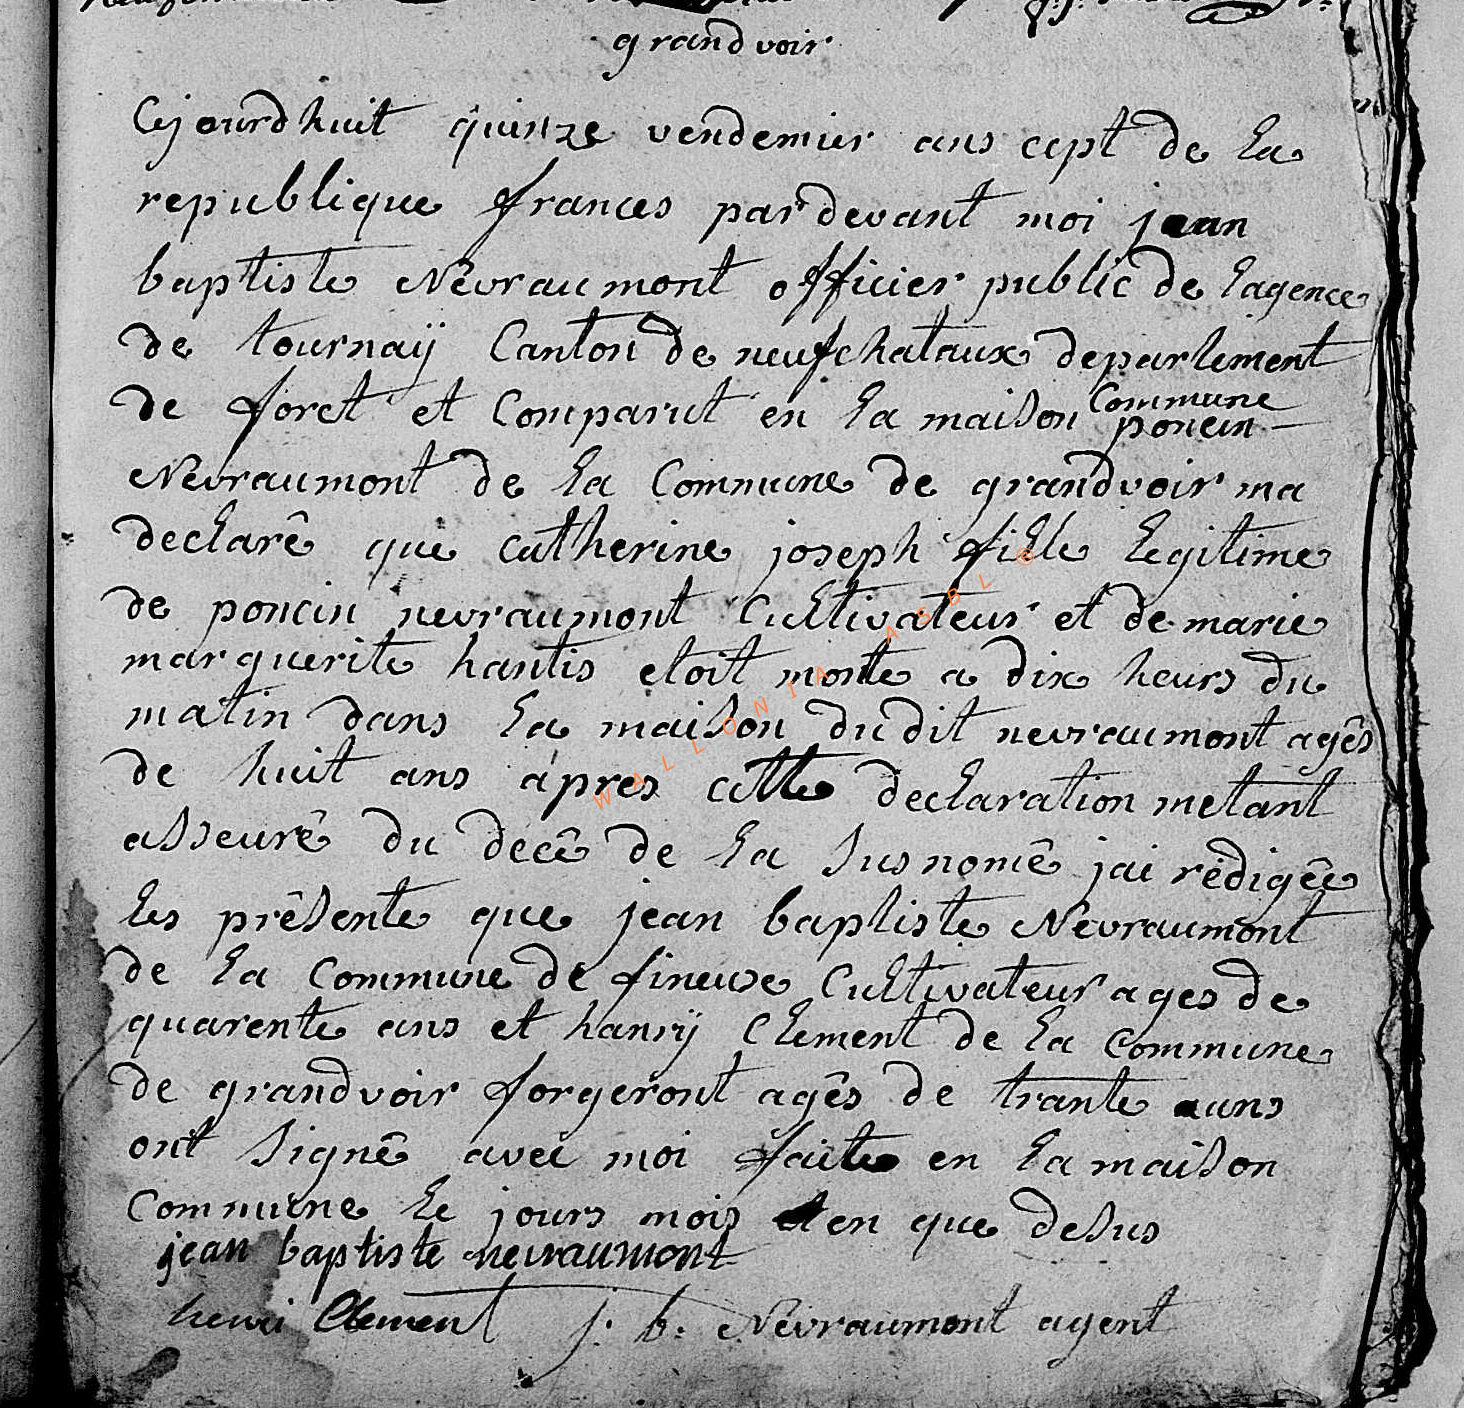 grandvoir
Cejourdhuit quinze vendemier ans cept de la
republique frances pardevant moi jean
baptiste Nevraumont officier public de lagence
de tournaÿ Canton de neufchataux departement
de foret et Comparut en la maison Commune
poncin
Nevraumont de la Commune de grandvoir ma
declarê que catherine joseph fille legitime
de poncin nevraumont Cultivateur et de marie
marguerite hantis etoit morte a dix heurs du
matin dans la maison dudit nevraumont agês
de huit ans apres cette declaration metant
asseurê du decê de la susnomê jai rêdigêe
les prêsente que jean baptiste Nevraumont
de la Commune de fineuse Cultivateur ages de
quarente ans et hanrÿ Clement de la Commune
de grandvoir forgeront agês de trante auns
ont signê avec moi faite en la maison
Commune le jours mois et en que desus
jean baptiste nevraumont
henri Clement j: b: Nevraumont agent
WALLONIA ASBL ©